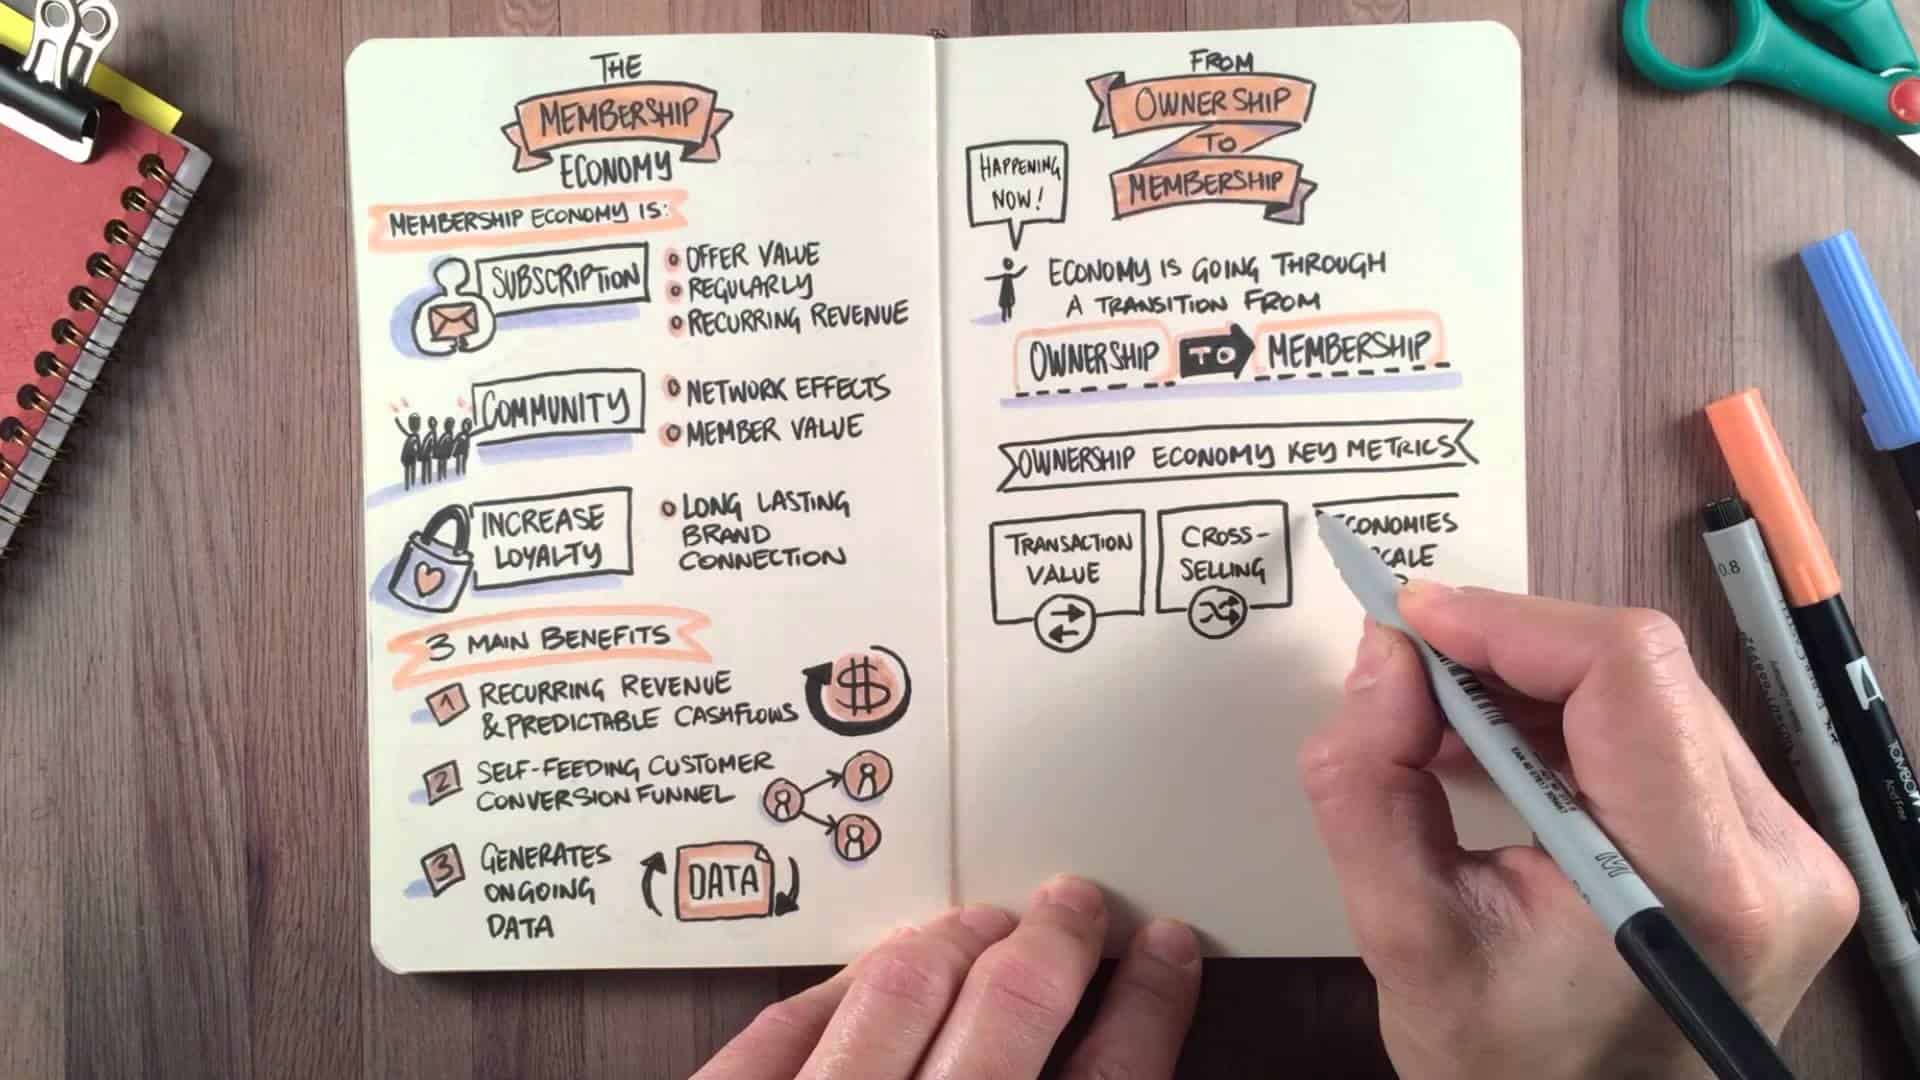 THE
MEMBERSHIP
ECONOMY
MEMBERSHIP ECONOMY IS:
SUBSCRIPTION
OFFER VALUE
REGULARLY
RECURRING REVENUE
COMMUNITY
NETWORK EFFECTS
MEMBER VALUE
INCREASE
LOYALTY
LONG LASTING
BRAND
CONNECTION
3 MAIN BENEFITS
1
RECURRING REVENUE
& PREDICTABLE CASHFLOWS
$
2
SELF-FEEDING CUSTOMER
CONVERSION FUNNEL
3
GENERATES
ONGOING
DATA
DATA
FROM
OWNERSHIP
TO
MEMBERSHIP
HAPPENING
NOW!
ECONOMY IS GOING THROUGH
A TRANSITION FROM
OWNERSHIP TO MEMBERSHIP
OWNERSHIP ECONOMY KEY METRICS
TRANSACTION
VALUE
CROSS-
SELLING
ECONOMIES
0.8
TOMBOW
Acid Free